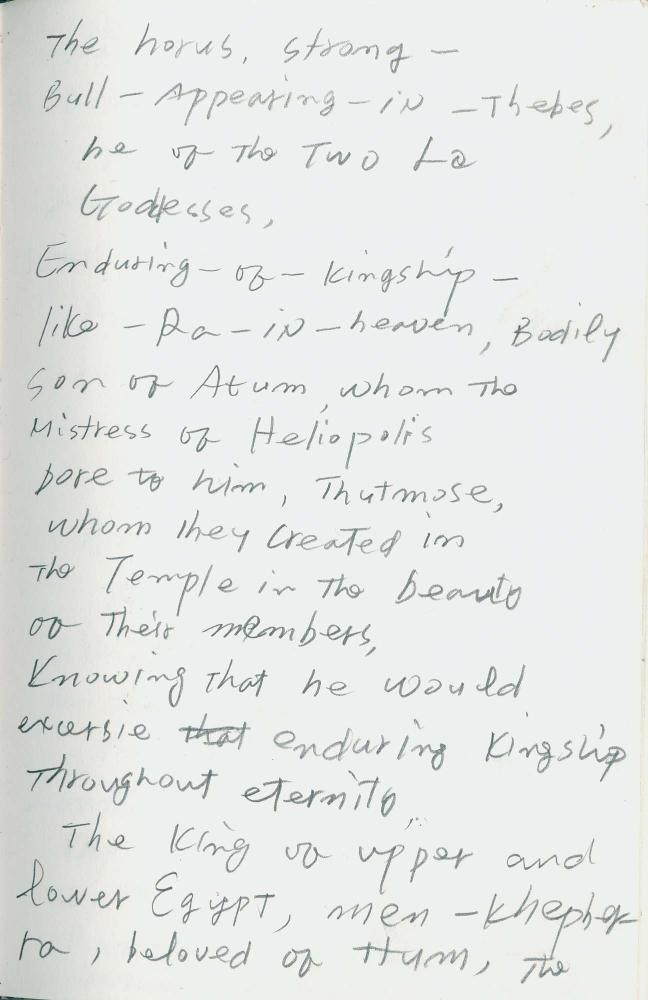 The horus, strong –
Bull – Appearing – in – Thebes,
he of the Two La
Goddesses,
Enduring – of – kingship –
like – Ra – in – heaven, Bodily
son of Atum, whom the
Mistress of Heliopolis
bore to him, Thutmose,
whom they created in
the Temple in the beauty
of their members,
Knowing that he would
excersie that enduring Kingship
throughout eternity,
The King of upper and
lower Egypt, men – Khepher
ra, beloved of Atum, the